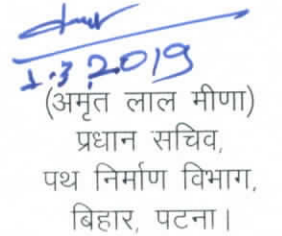 1.3.2019
(अमृत लाल मीणा)
प्रधान सचिव,
पथ निर्माण विभाग,
बिहार, पटना।